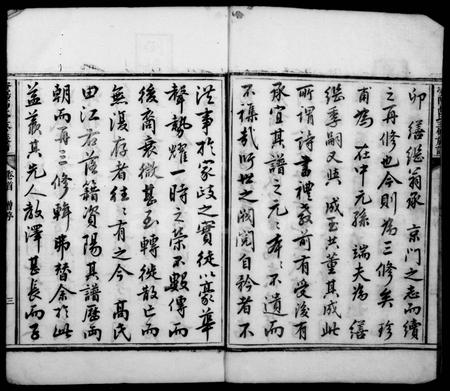 卯繕继翁承京門之志而續
之再修也今則為三修矣珍
甫為在中元孫端夫為繕
继季嗣又与成玉共董其成此
所謂詩書禮教前有受後有
承宜其譜之元元本本不遺而
不襍哉所世之閥閱自矜者不
從事於家政之實徒以豪華
聲勢耀一時之榮不數傳而
後裔衰微甚至轉徙散亡而
無復存者往往有之今高氏
由江右落籍資陽其譜歷兩
朝而再三修輯弗替余於此
益羨其先人教澤甚長而子
卷首
三